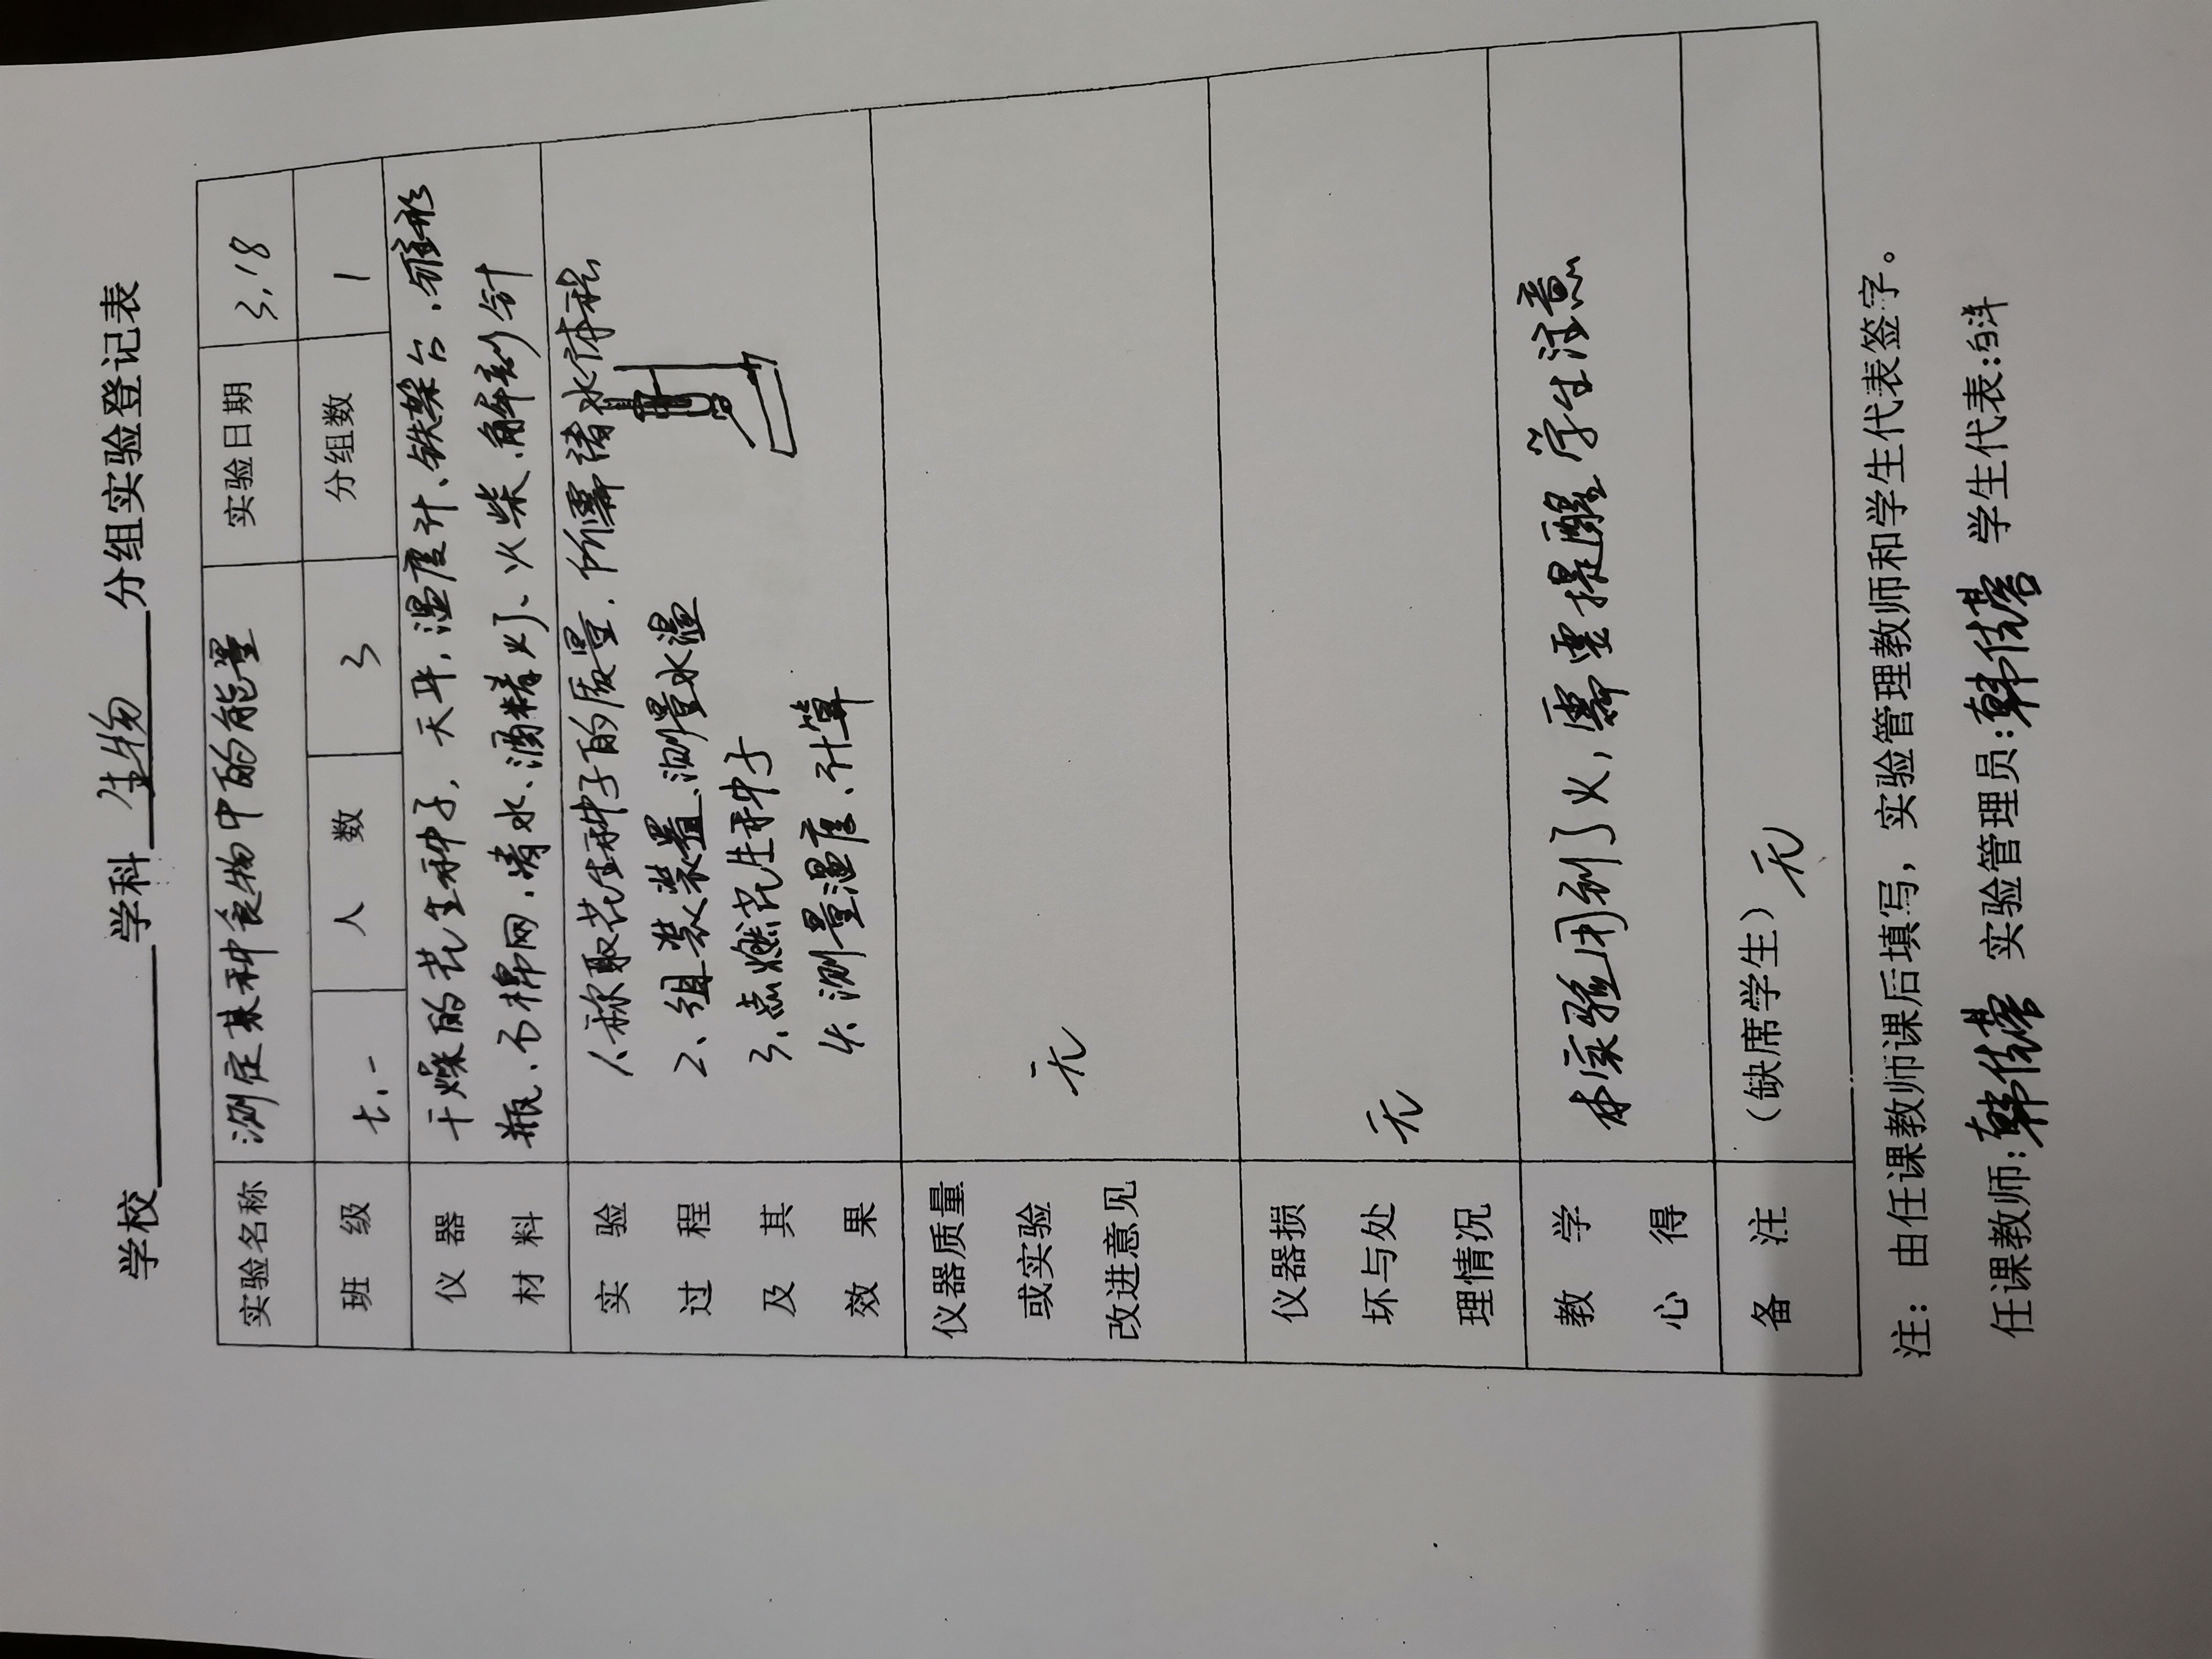 学校　　　　学科 生物 分组实验登记表
实验名称 测定某种食物中的能量 实验日期 3.18
班级 七.一 人数 3 分组数 1
仪器 干燥的花生种子,天平,温度计、铁架台、锥形
材料 瓶、石棉网、清水、酒精灯、火柴、解剖针
实验 1、称取花生种子的质量,所需清水体积
过程 2、组装装置、测量水温
及其 3、点燃花生种子
效果 4、测量温度、计算
仪器质量
或实验 无
改进意见
仪器损
坏与处 无
理情况
教学 本实验用到了火,需要提醒学生注意
心得
备注 (缺席学生) 无
注：由任课教师课后填写，实验管理教师和学生代表签字。
任课教师: 韩佳蓉 实验管理员: 韩佳蓉 学生代表: